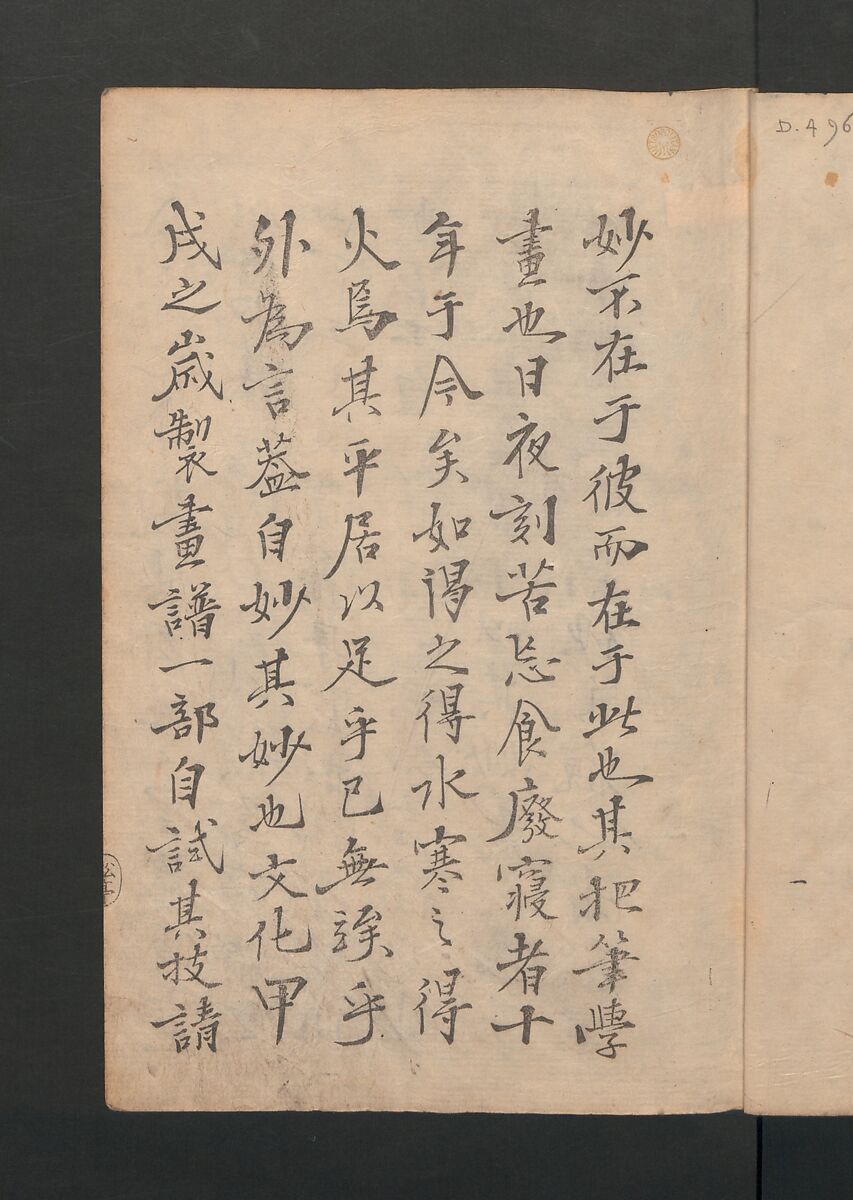 妙不在于彼而在于此也其把筆學
畫也日夜刻苦忘食廢寝者十
年于今矣如渇之得水寒之得
火焉其平居以足乎已無竢乎
外為言葢自妙其妙也文化甲
戌之歳製畫譜一部自試其技請
D.496